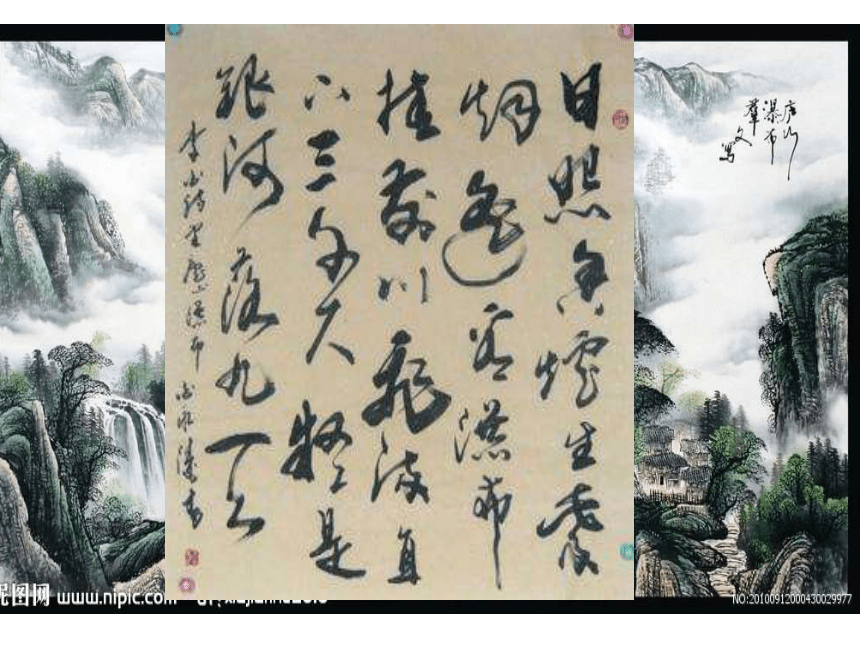 日照香爐生紫
烟遥看瀑布
挂前川飛流直
下三千尺疑是
銀河落九天
李白詩望廬山瀑布
書
庐山
瀑布
羣
文
写
昵图网 www.nipic.com
NO:20100912000430029977